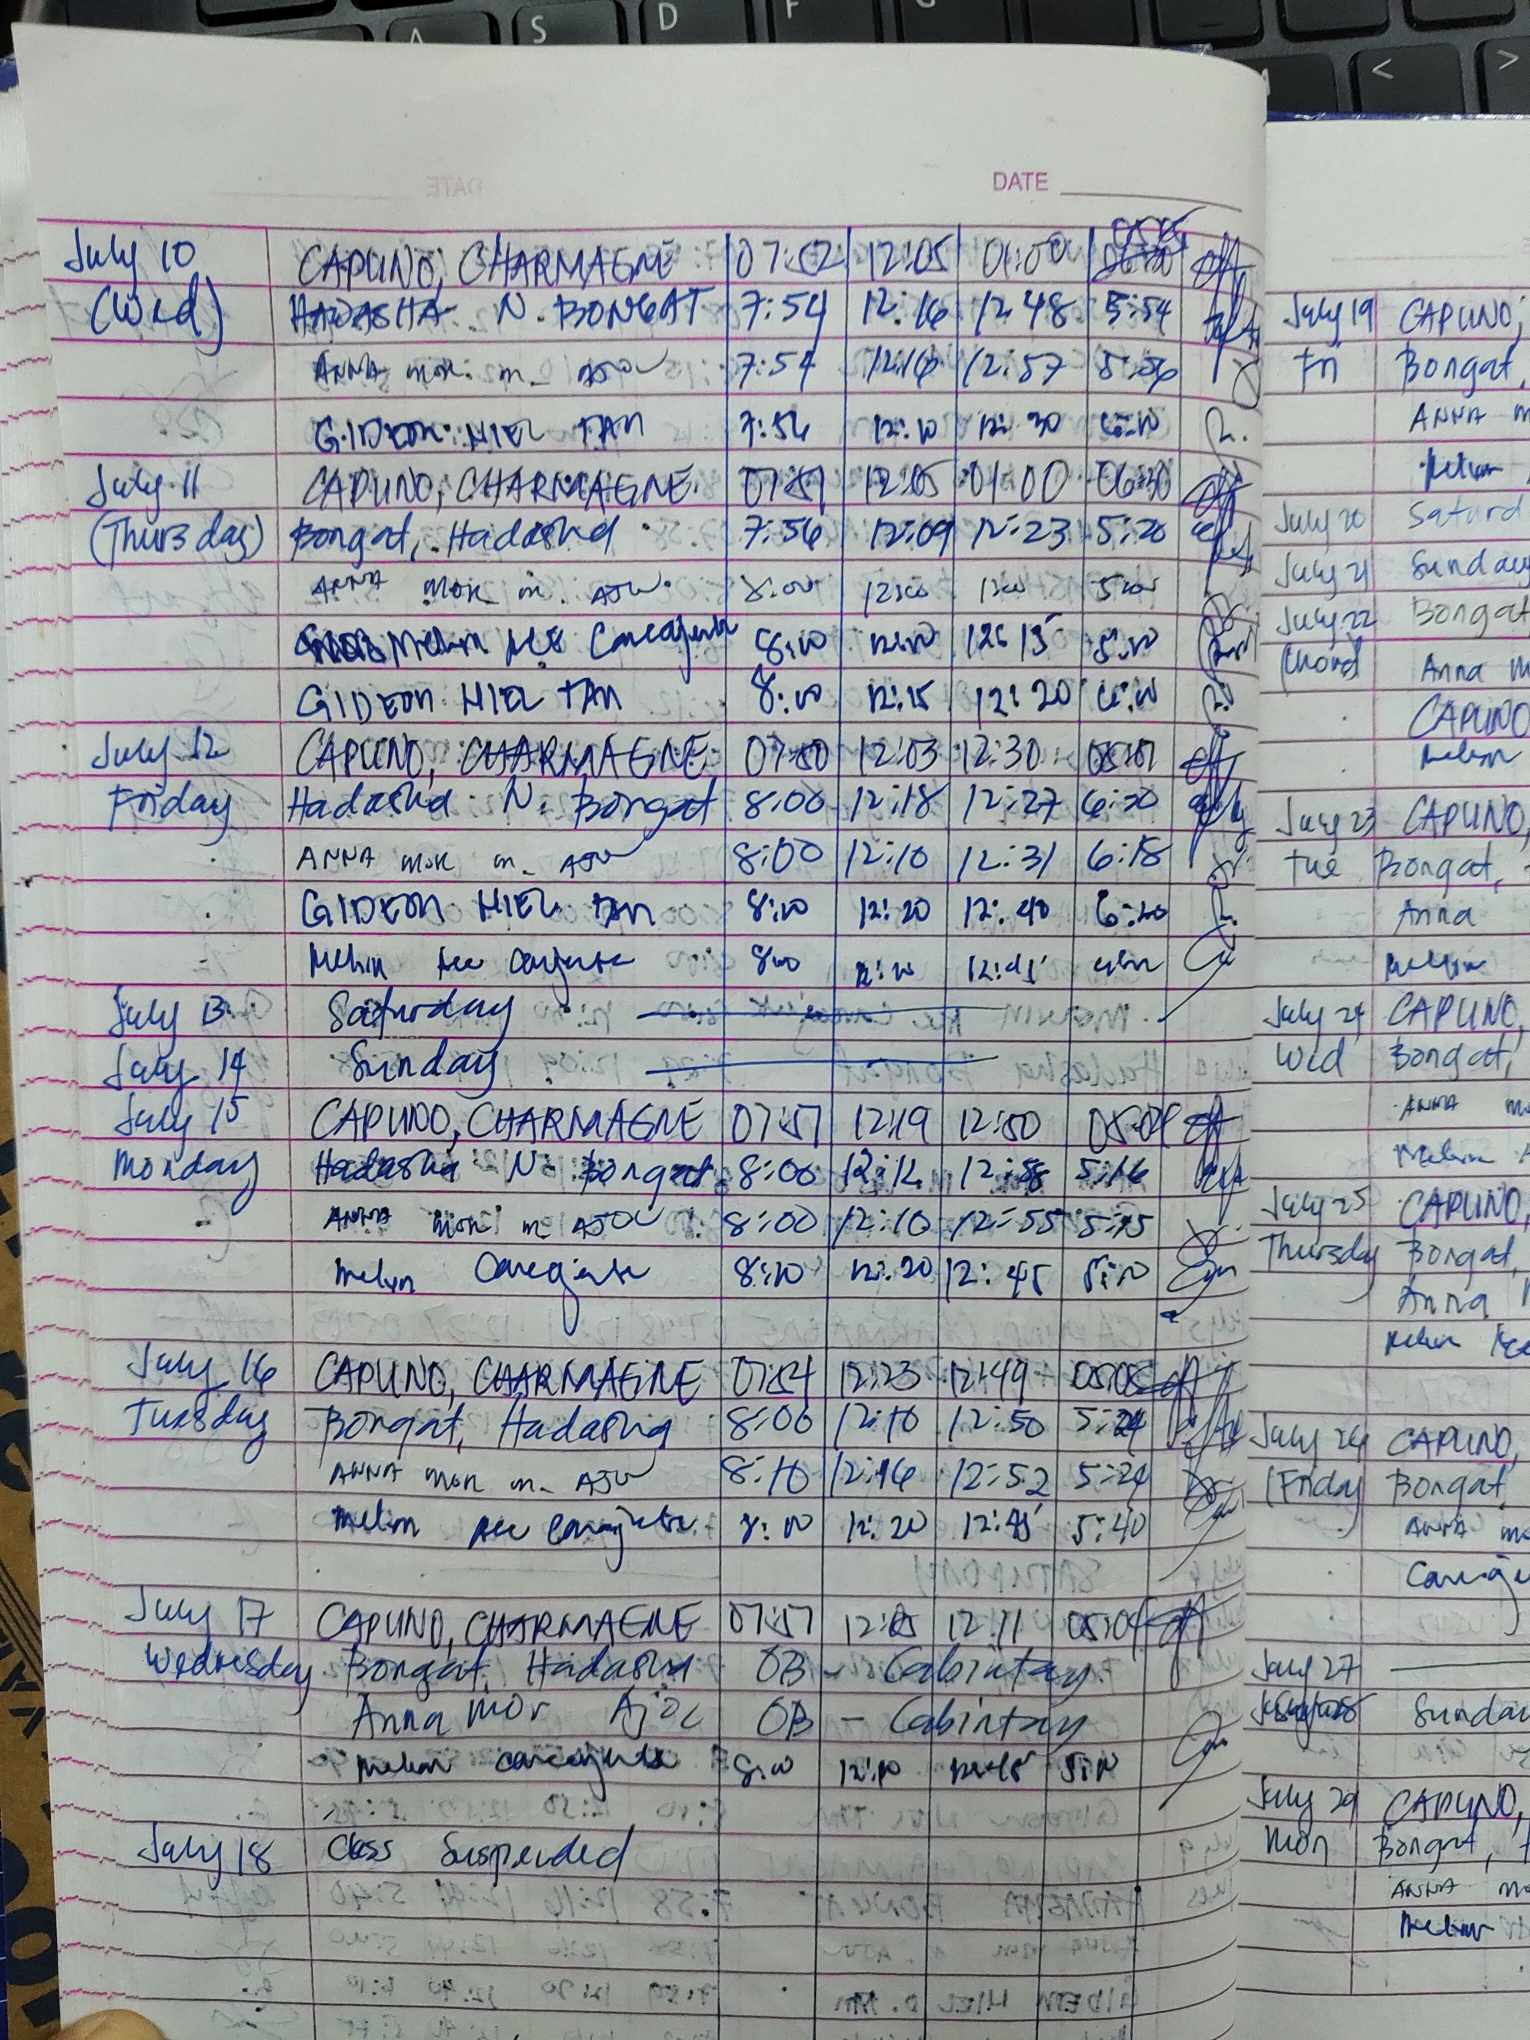 A S D F
< >
DATE
July 10 CAPUNO, CHARMAGNE 07:52 12:05 01:00
(Wed) HADASHA N. BONGAT 7:54 12:16 12:48 5:54
ANNA mor m. 7:54 12:16 12:57 5:56
GIDEON HIEL TAN 7:56 12:10 12:30 6:10
July 11 CAPUNO, CHARMAGNE 07:51 12:05 01:00 06:30
(Thursday) Bongat, Hadasha 7:56 12:09 12:23 5:20
ANNA mor m. 8:00 12:00 1:00 5:00
8:10 12:10 5:10
GIDEON HIEL TAN 8:10 12:15 12:20 6:10
July 12 CAPUNO, CHARMAGNE 07:50 12:03 12:30
Friday Hadasha N. Bongat 8:00 12:18 12:27 6:20
ANNA mor m. 8:00 12:10 12:31 6:18
GIDEON HIEL TAN 8:10 12:20 12:40 6:20
8:00 12:10 12:45
July 13 Saturday
July 14 Sunday
July 15 CAPUNO, CHARMAGNE 07:57 12:19 12:50
Monday Hadasha N. Bongat 8:00 12:12 12:58 5:16
ANNA mor m. 8:00 12:10 12:55 5:15
8:10 12:20 12:45 5:10
July 16 CAPUNO, CHARMAGNE 07:54 12:23 12:49 05:05
Tuesday Bongat, Hadasha 8:00 12:10 12:50 5:24
ANNA mor m. 8:10 12:16 12:52 5:24
8:10 12:20 12:45 5:40
July 17 CAPUNO, CHARMAGNE 07:57 12:05 12:11 05:04
Wednesday Bongat, Hadasha OB - Cabintay
Anna mor Ajoc OB - Cabintay
8:10 12:10 12:45 5:10
July 18 Class Suspended
July 19 CAPUNO,
Fri Bongat,
ANNA m
July 20 Saturd
July 21 Sunday
July 22 Bongat
Anna M
CAPUNO
July 23 CAPUNO,
Tue Bongat,
Anna
July 24 CAPUNO,
Wed Bongat,
ANNA mo
July 25 CAPUNO,
Thursday Bongat,
Anna
July 26 CAPUNO,
(Friday Bongat
ANNA mo
July 27
Sunda
July 29 CAPUNO,
Mon Bongat,
ANNA mo